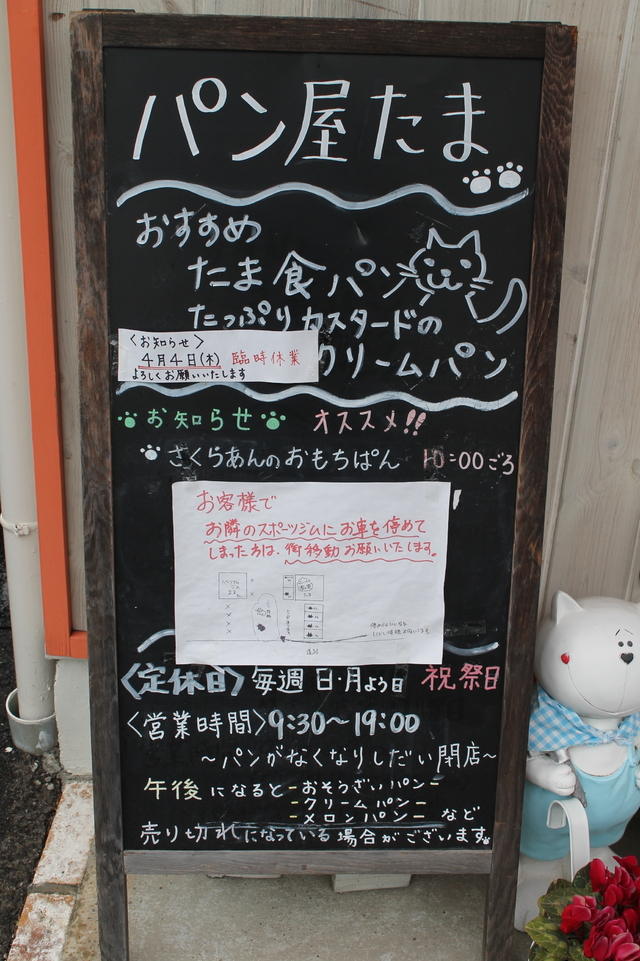 パン屋たま
おすすめ
たま食パン
たっぷりカスタードの
クリームパン
〈お知らせ〉
4月4日(木) 臨時休業
よろしくお願いいたします
お知らせ オススメ!!
さくらあんのおもちぱん 10:00ごろ
お客様で
お隣のスポーツジムにお車を停めて
しまった方は、御移動お願いいたします。
〈定休日〉毎週 日・月よう日 祝祭日
〈営業時間〉9:30〜19:00
〜パンがなくなりしだい閉店〜
午後になると -おそうざいパン-
-クリームパン-
-メロンパン- など
売り切れになっている場合がございます。